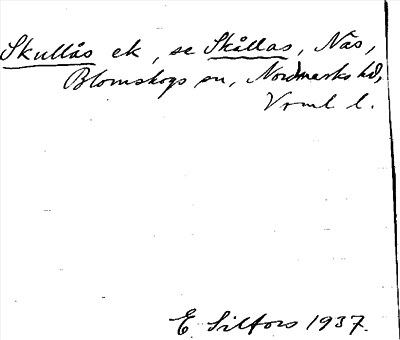 Skullås ek, se Skållas, Näs,
Blomskogs sn, Nordmarks hd,
Vrml l.
E Silfors 1937.